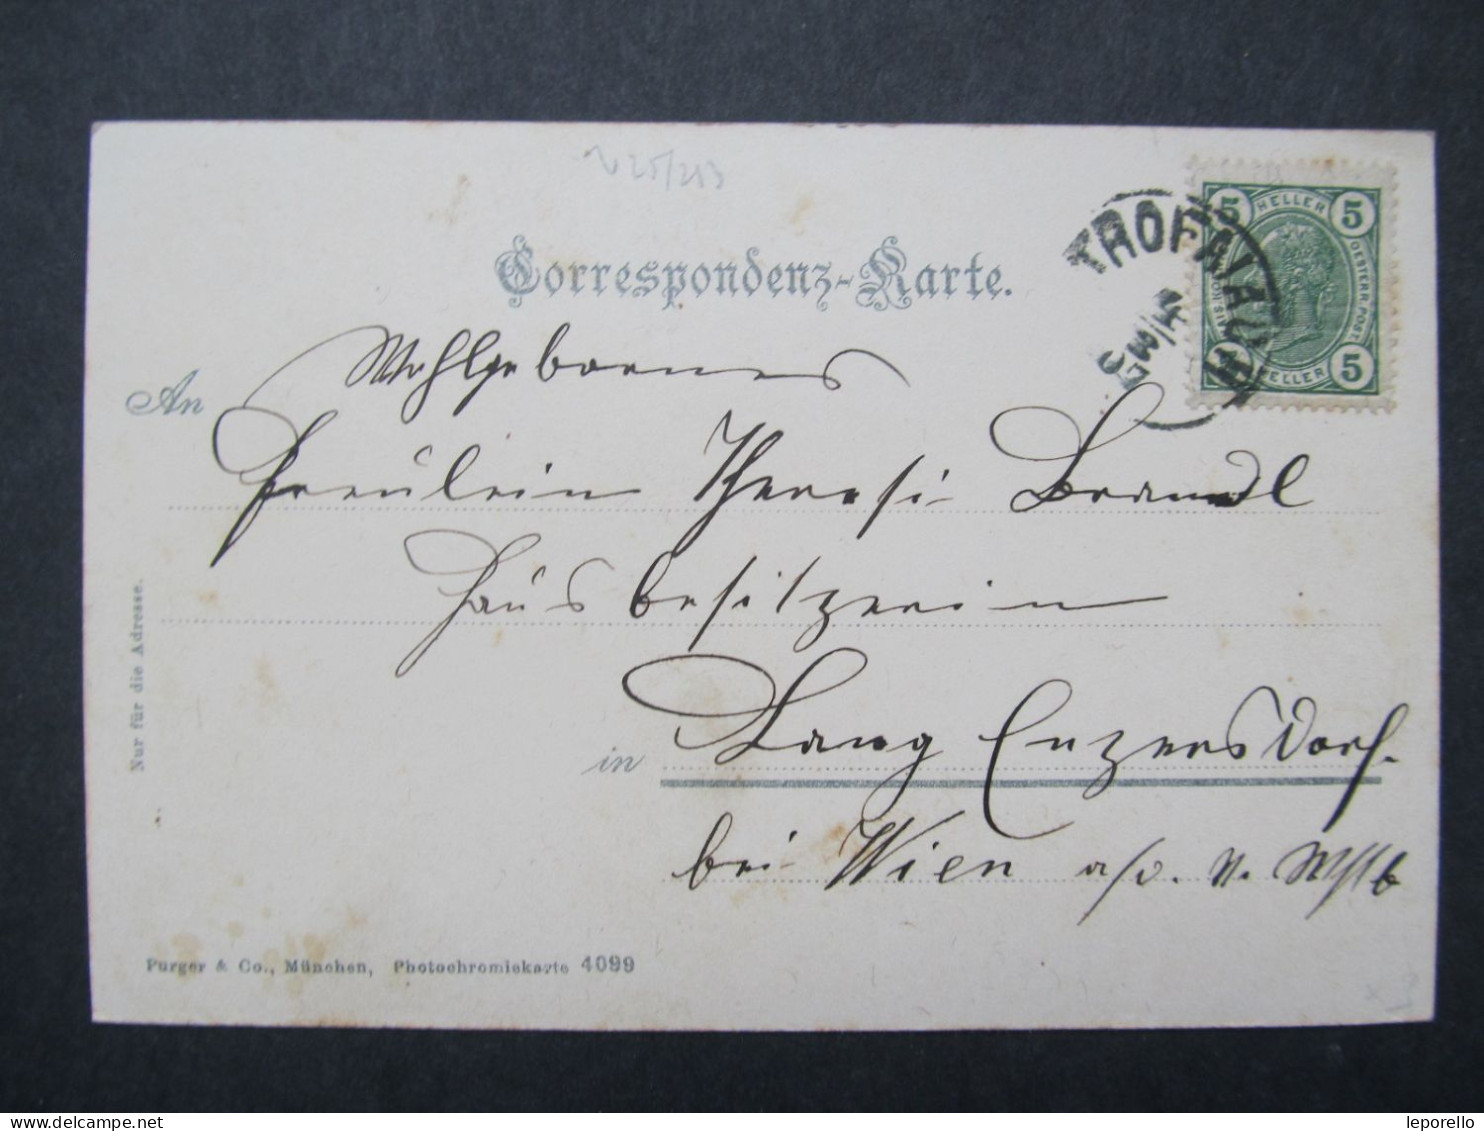 Correspondenz-Karte.
5 HELLER 5
OESTERR. POST
5 HELLER 5
TROFAIACH
An Wohlgebornes
Fräulein Theresi Brandl
Hausbesitzerin
in Lang Enzersdorf.
bei Wien a/d. N. W. Stb
Nur für die Adresse.
Purger & Co., München, Photochromiekarte 4099
leporello